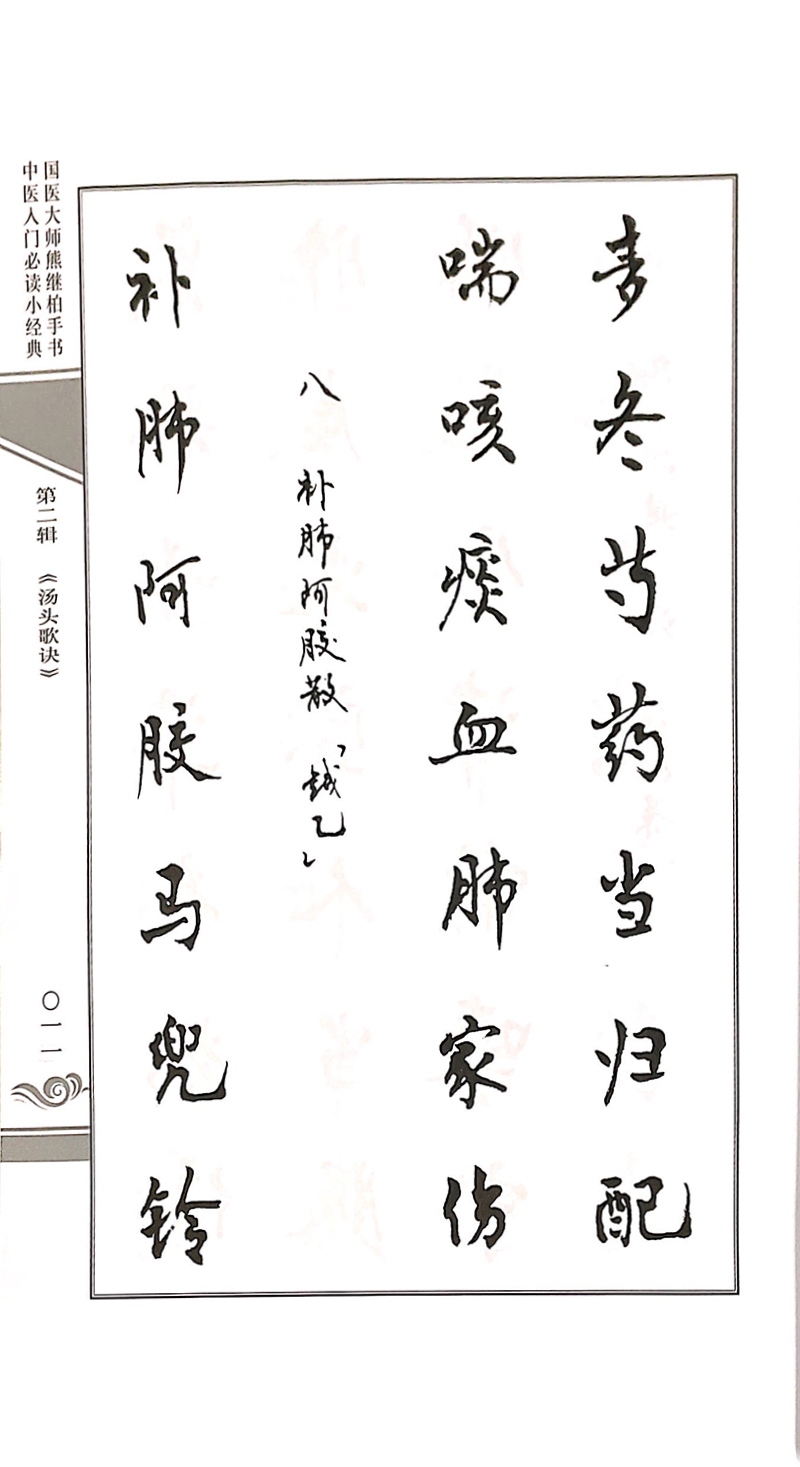 麦冬芍药当归配
喘咳痰血肺家伤
八 补肺阿胶散「钱乙」
补肺阿胶马兜铃
国医大师熊继柏手书
中医入门必读小经典
第二辑 《汤头歌诀》
〇一一